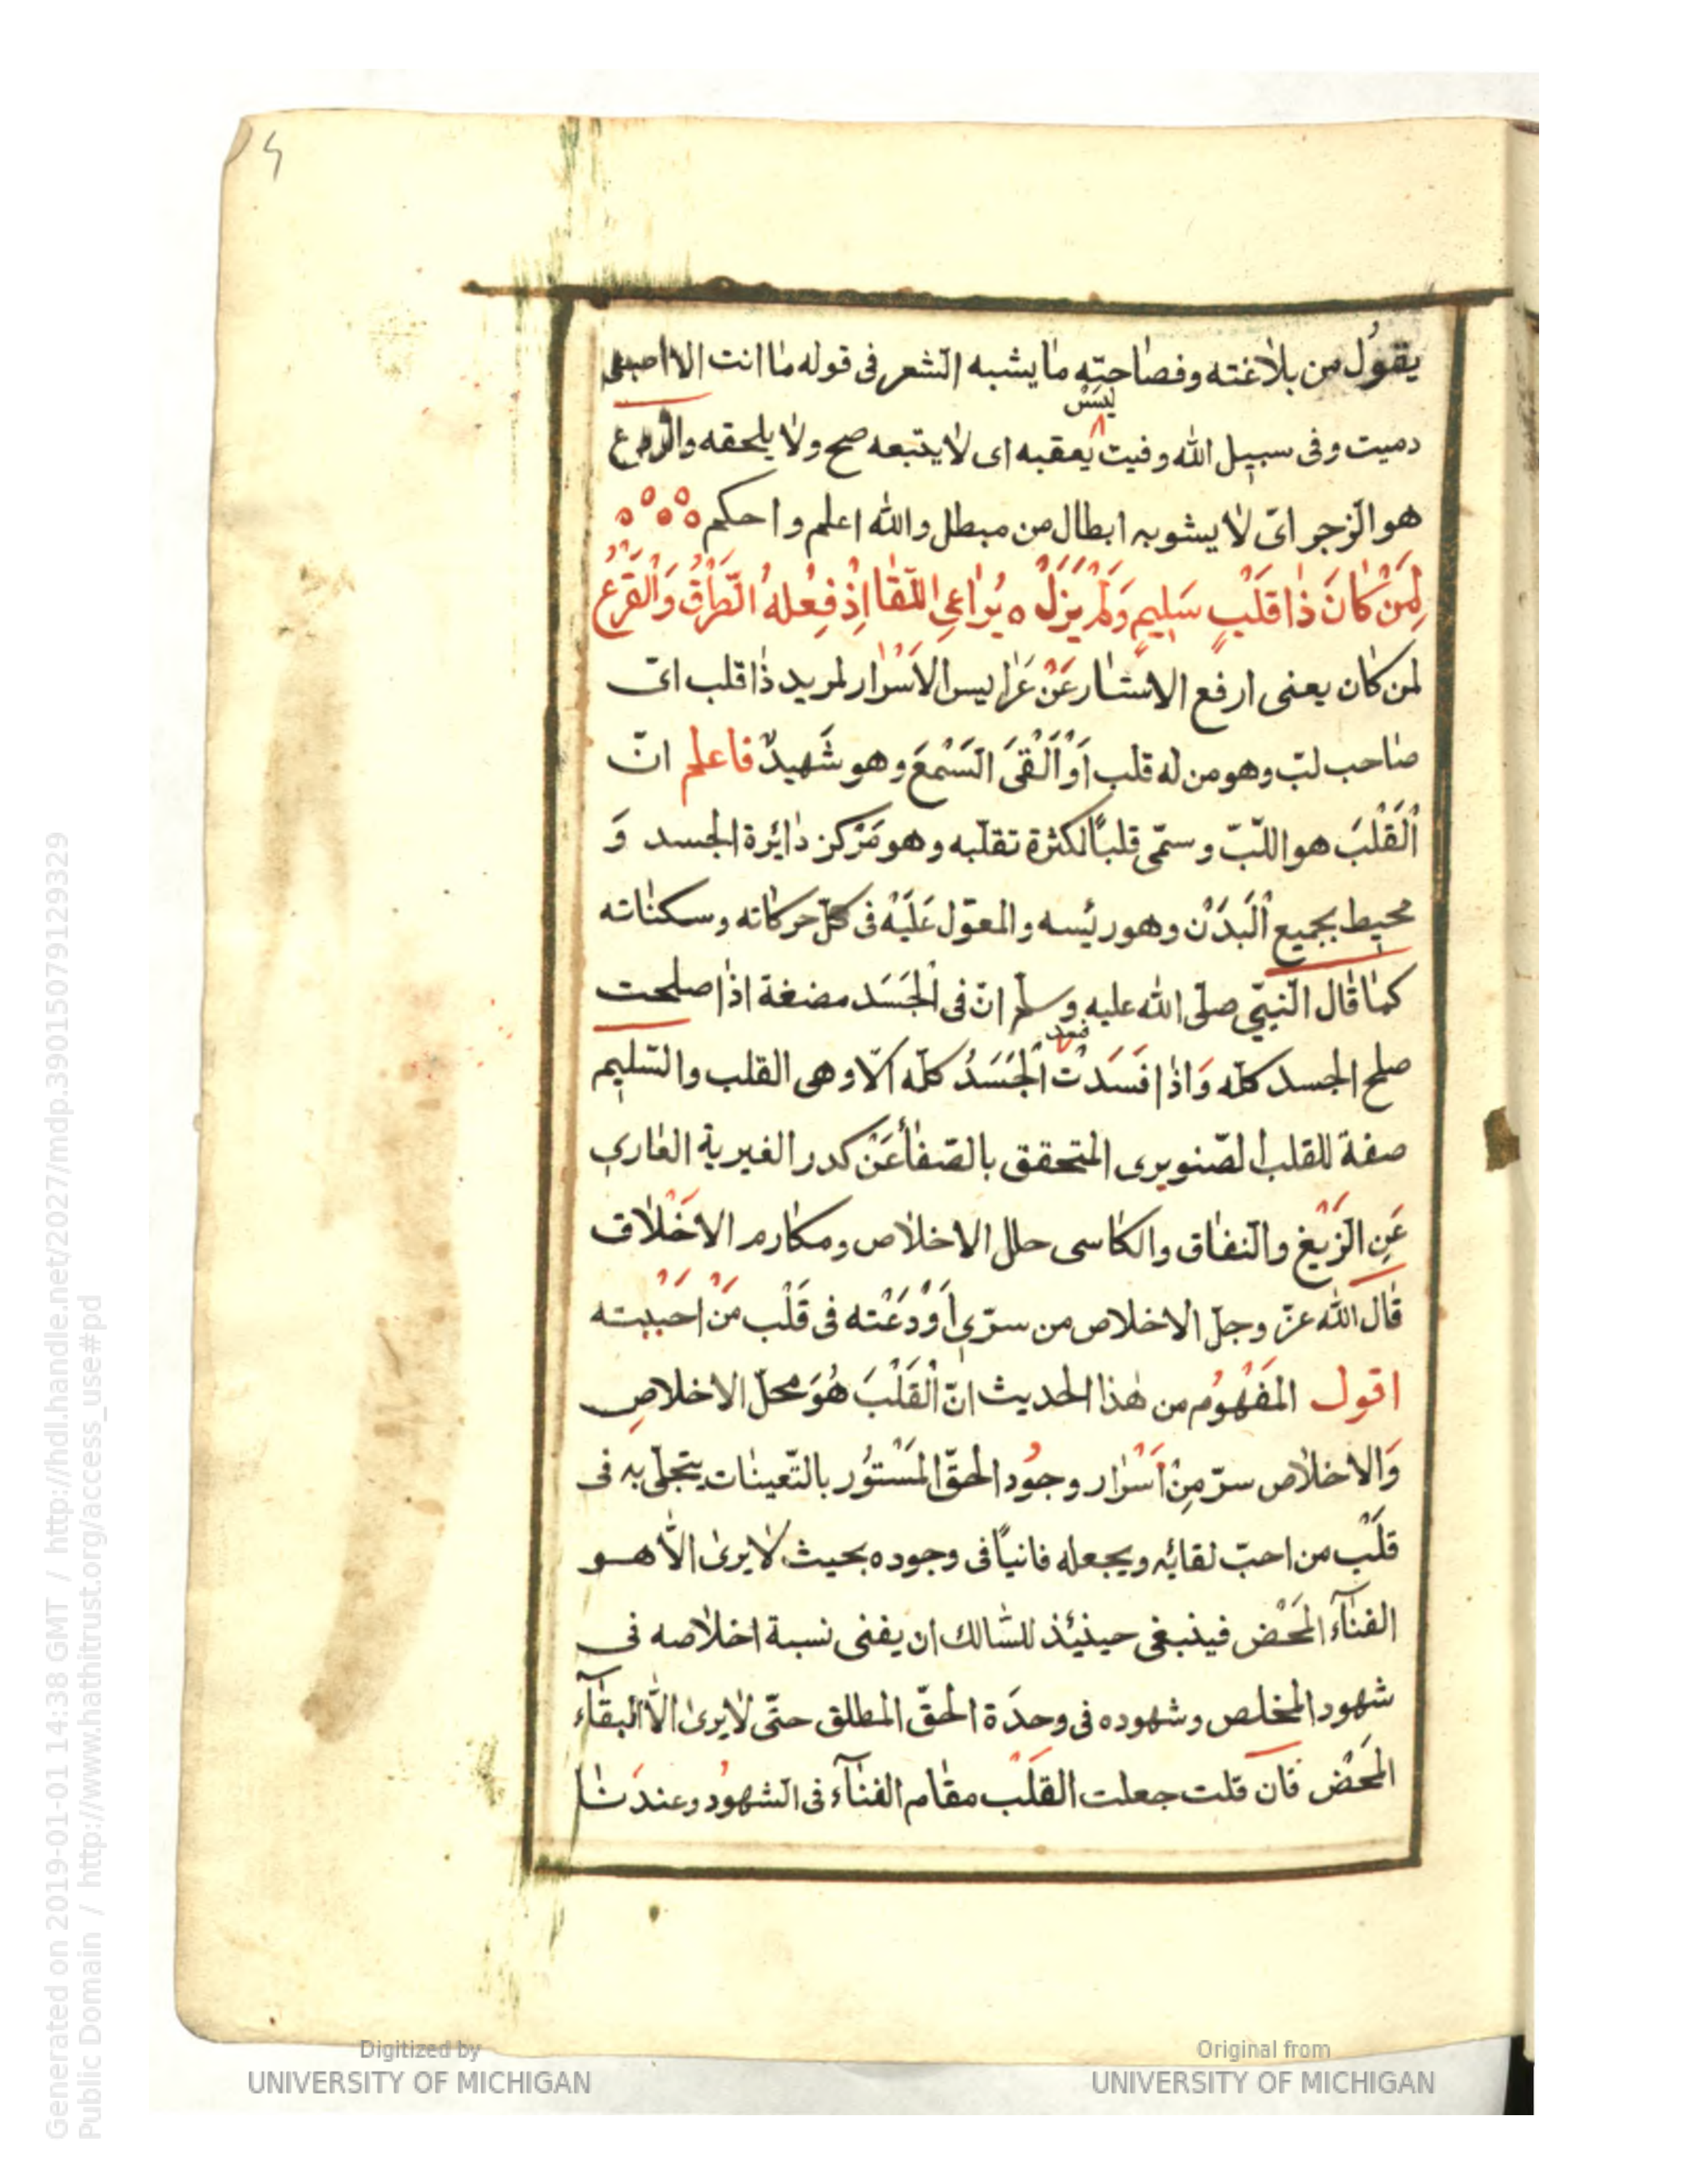 يقول من بلاغته وفصاحته ما يشبه الشعر فى قوله ما انت الا اصبع
ليس
دميت وفى سبيل الله وفيت يعقبه اى لا يتبعه صح ولا يلحقه
هو الزجر اىّ لا يشوبه ابطال من مبطل والله اعلم واحكم
لِمَنْ كَانَ ذَا قَلْبٍ سَلِيمٍ وَلَمْ يَزَلْ ٥ يُرَاعِي اللِّقَا اِذْ فِعْلُهُ الطَّرْقُ وَالْقَرْعُ
لمن كان يعنى ارفع الاستار عَنْ عَرَايس الاَسْرار لمريد ذا قلب اىّ
صاحب لبّ وهو من له قلب اَوْ اَلْقَى السَّمْعَ وهو شَهيدٌ فاعلم انّ
اَلْقَلْبَ هو اللّبّ وسمّى قلبًا لكثرة تقلّبه وهو مَرْكز دايرة الجسد وَ
محيط بجميع اْلبَدَنْ وهو رئيسه والمعوّل عَلَيْه فى كلّ حركاته وسكناته
كما قال النّبيّ صلّى الله عليه وسلّم انّ فى الْجَسَد مضغة اذا صلحت
فسد
صلح الجسد كلّه وَاذا فَسَدَتْ الْجَسَدُ كلّه اَلاَ وهى القلب والسّليم
صفة للقلب الصّنوبرى المتحقق بالصّفا عَنْ كدر الغيرية العارى
عَنِ الزَيْغِ والنفاق والكاسى حلل الاخلاص ومكارم الاخَلاق
قال الله عزّ وجلّ الاخلاص من سرّي اَوْدَعْته فى قَلْب مَنْ احببته
اقول المَفْهُوم من هذا الحديث انّ اْلقَلْبَ هُوَ محلّ الاخلاصِ
وَالاخلاص سرّ مِنْ اَسْرار وجُود الحقّ المَسْتوُر بالتّعينات يتجلّى به فى
قَلْب من احبّ لقائه ويجعله فانيًا فى وجوده بحيث لا يرى الّا هو
الفنآء المَحْض فينبغى حينئذ للسّالك ان يفنى نسبة اخلاصه فى
شهود المخلص وشهوده فى وحدَة الحقّ المطلق حتّى لا يرى الّا البقآء
المَحْض فان قلت جعلت القَلْب مقام الفنآء فى الشهوُد وعندنا
Digitized by
UNIVERSITY OF MICHIGAN
Original from
UNIVERSITY OF MICHIGAN
Generated on 2019-01-01 14:38 GMT / http://hdl.handle.net/2027/mdp.39015079129329
Public Domain / http://www.hathitrust.org/access_use#pd